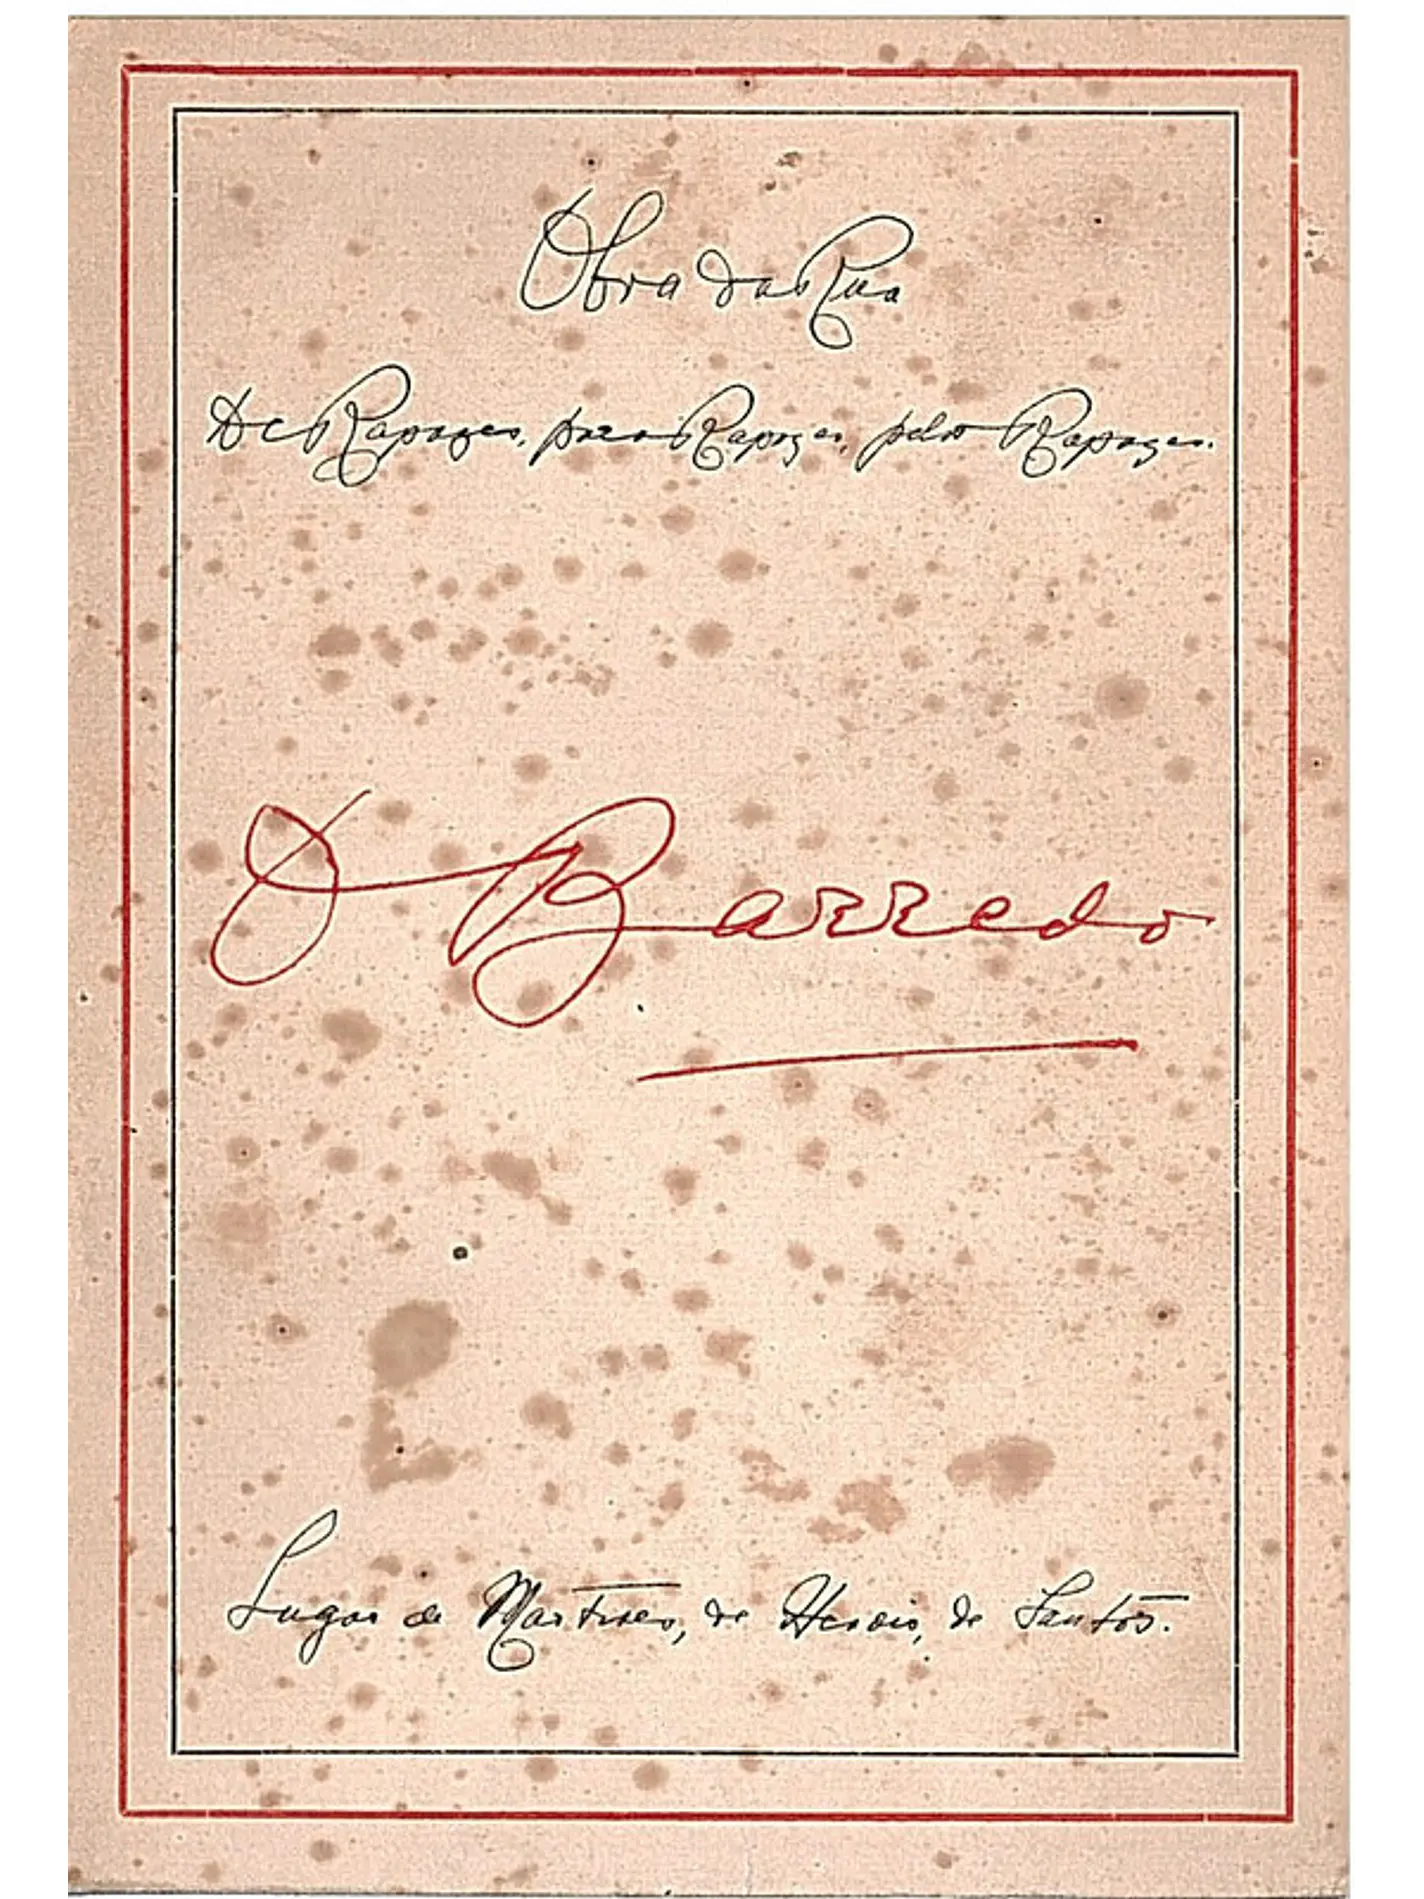 Obra da Rua
De Rapazes, para Rapazes, pelos Rapazes.
O Barredo
Lugar de Martires, de Herois, de Santos.